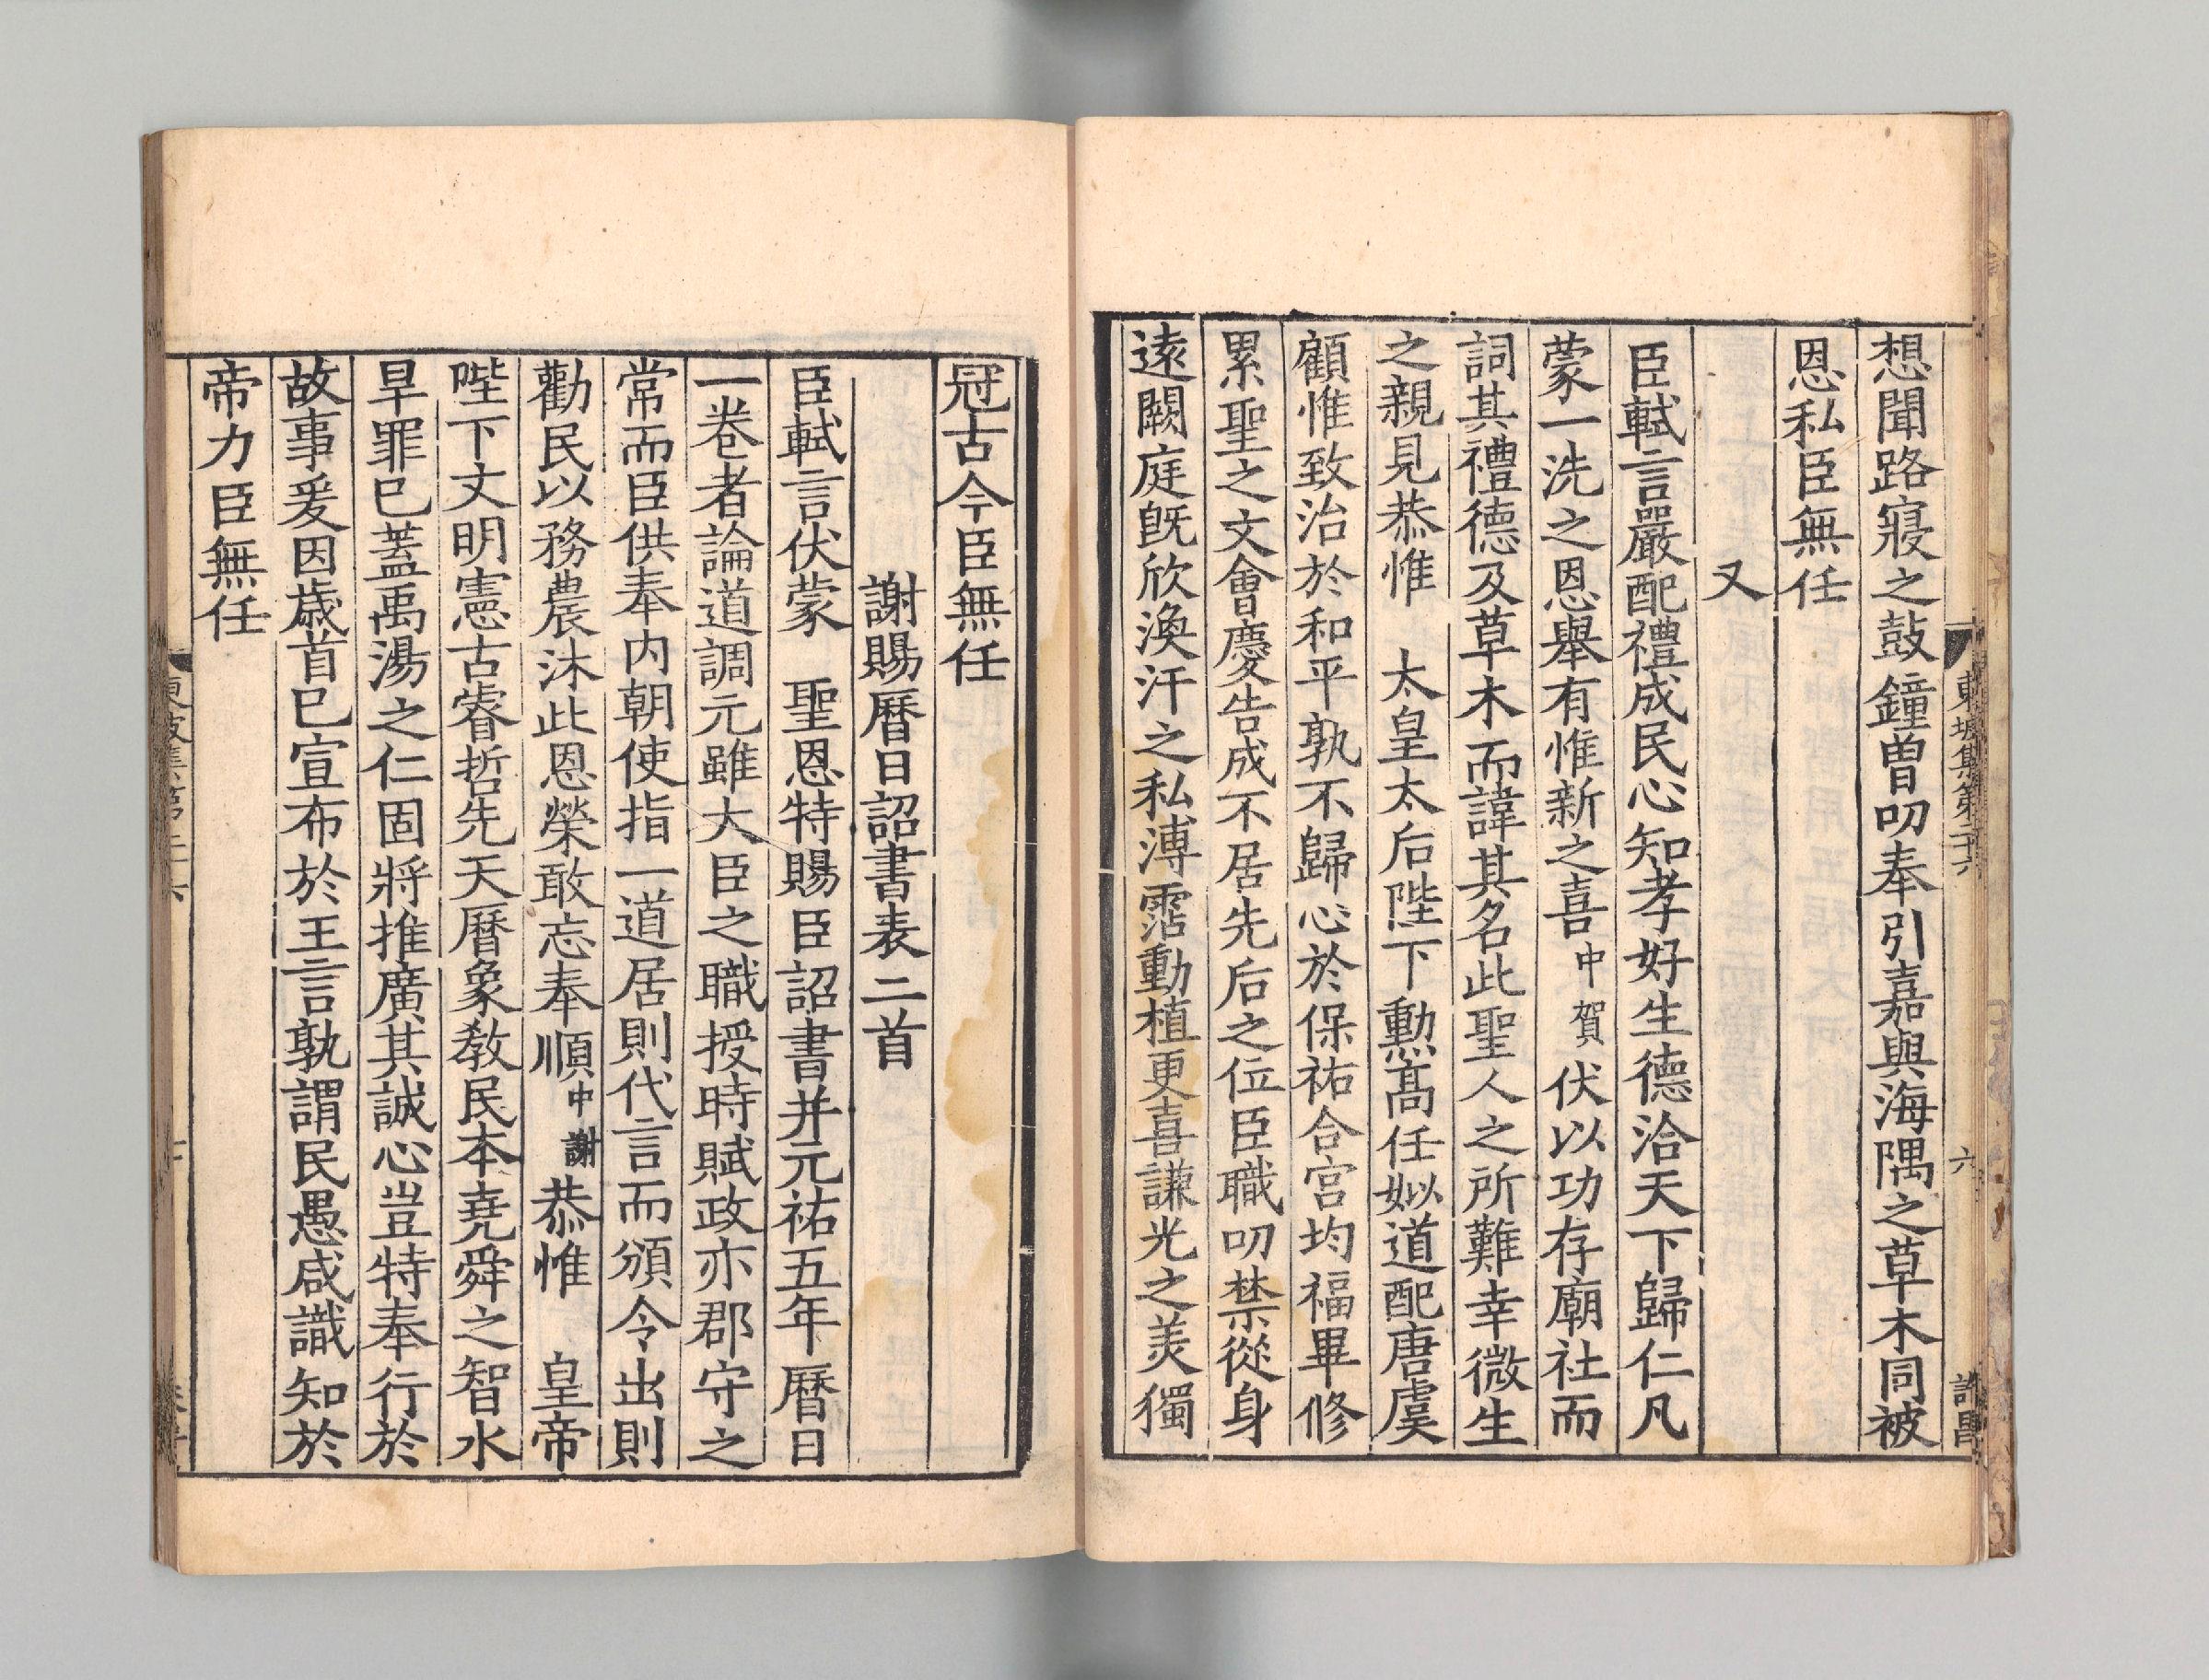 東坡集第二十六
六
許昌
想聞路寢之鼓鐘曽叨奉引嘉與海隅之草木同被
恩私臣無任
又
臣軾言嚴配禮成民心知孝好生德洽天下歸仁凡
蒙一洗之恩舉有惟新之喜中賀伏以功存廟社而
詞其禮德及草木而諱其名此聖人之所難幸微生
之親見恭惟　太皇太后陛下勳髙任姒道配唐虞
顧惟致治於和平孰不歸心於保祐合宮均福畢修
累聖之文會慶告成不居先后之位臣職叨禁從身
逺闕庭旣欣渙汗之私溥霑動植更喜謙光之羙獨
冠古今臣無任
謝賜曆日詔書表二首
臣軾言伏蒙　聖恩特賜臣詔書并元祐五年曆日
一卷者論道調元雖大臣之職授時賦政亦郡守之
常而臣供奉内朝使指一道居則代言而頒令出則
勸民以務農沐此恩榮敢忘奉順中謝恭惟　皇帝
陛下文明憲古睿哲先天曆象教民本堯舜之智水
旱罪已蓋禹湯之仁固將推廣其誠心豈特奉行於
故事爰因歳首已宣布於王言孰謂民愚咸識知於
帝力臣無任
東坡集第二十六